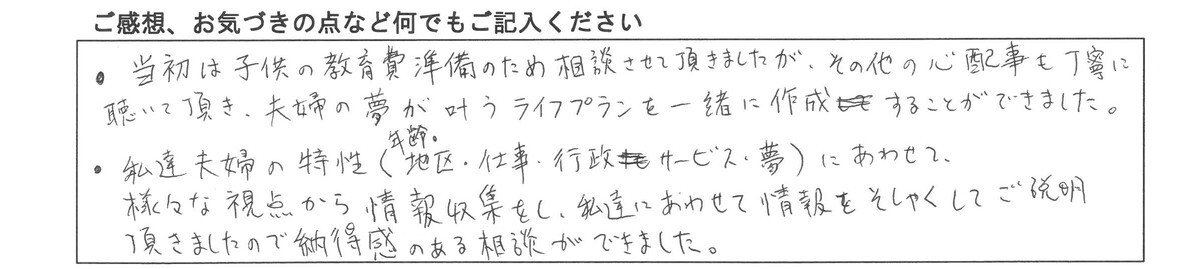 ご感想、お気づきの点など何でもご記入ください
・当初は子供の教育費準備のため相談させて頂きましたが、その他の心配事も丁寧に
聴いて頂き、夫婦の夢が叶うライフプランを一緒に作成することができました。
・私達夫婦の特性（年齢・地区・仕事・行政サービス・夢）にあわせて、
様々な視点から情報収集をし、私達にあわせて情報をそしゃくしてご説明
頂きましたので納得感のある相談ができました。